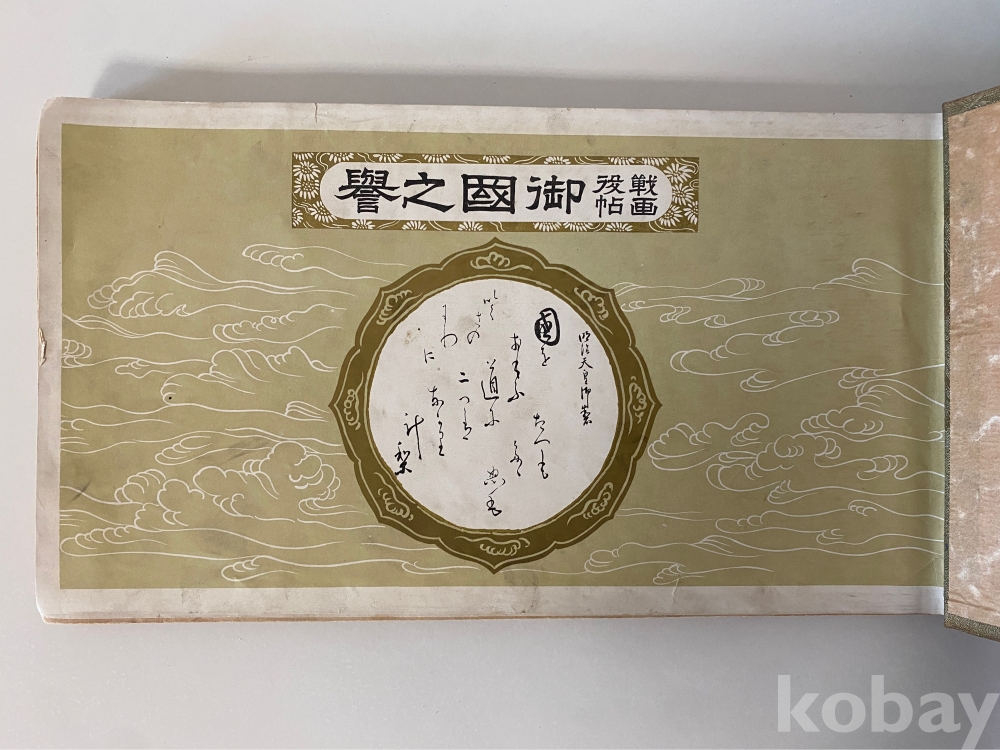 戰役
画帖
御國之譽
明治天皇御製
國を
おもふ
道に
二つは
なかり
計梨
kobay